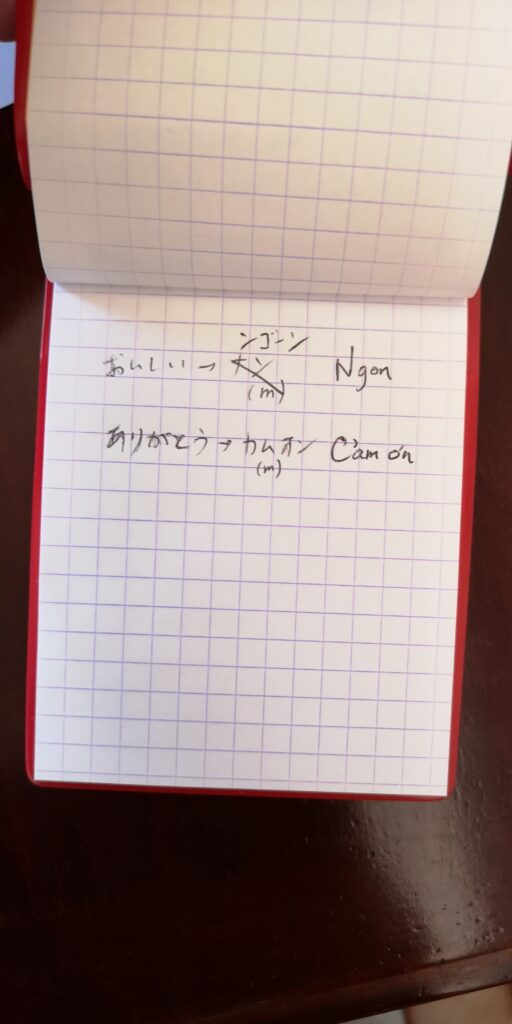 ンゴーン
おいしい→ オン Ngon
(m)
ありがとう→カムオン Cảm ơn
(m)